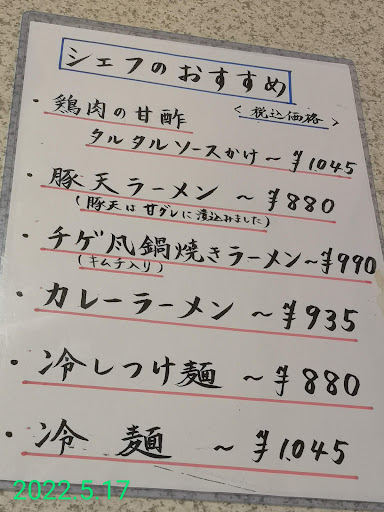 シェフのおすすめ
<税込価格>
・鶏肉の甘酢
タルタルソースかけ~¥1.045
・豚天ラーメン ~ ¥880
(豚天は甘ダレに漬込みました)
・チゲ風鍋焼きラーメン~¥990
(キムチ入り)
・カレーラーメン ~ ¥935
・冷しつけ麺 ~ ¥880
・冷麺 ~ ¥1.045
2022.5.17